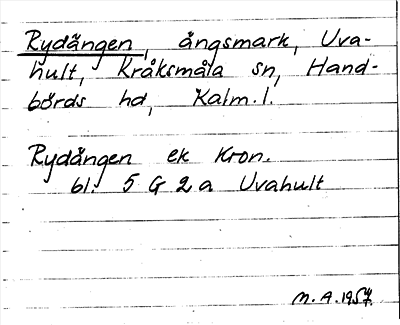 Rydängen, ängsmark, Uva-
hult, Kråksmåla sn, Hand-
börds hd, Kalm. l.
Rydängen ek Kron.
bl. 5 G 2 a Uvahult
M. A. 1957.